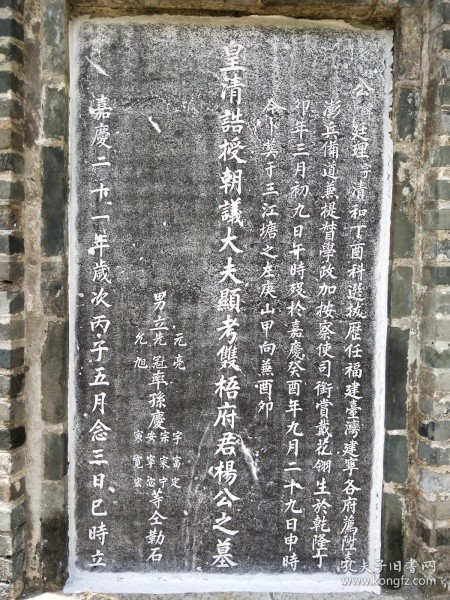 公諱廷理字清和丁酉科選拔歷任福建臺灣建寧各府薦陞臺
澎兵備道兼提督學政加按察使司銜賞戴花翎生於乾隆丁
卯年三月初九日午時歿於嘉慶癸酉年九月二十九日申時
今卜葬于三江塘之左庚山甲向兼酉卯
皇清誥授朝議大夫顯考雙梧府君楊公之墓
男立 元亮
先冠
允旭
率孫慶 宇富定
崇家守
安寧宓
寅寬宏
等仝勒石
嘉慶二十一年歲次丙子五月念三日巳時立
孔夫子旧书网
www.kongfz.com